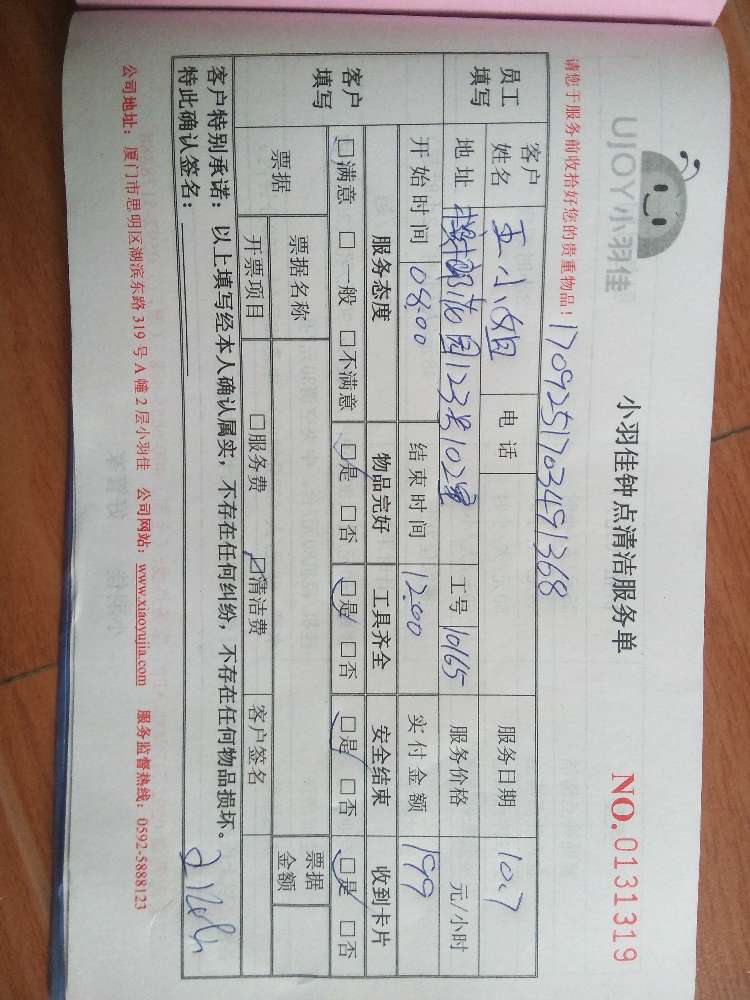 UJOY小羽佳
小羽佳钟点清洁服务单
NO.0131319
请您于服务前收拾好您的贵重物品！
1709251703491368
员工填写
客户姓名 王小姐 电话 服务日期 10.7
地址 花园123号102室 工号 10165 服务价格 元/小时
开始时间 08:00 结束时间 12:00 实付金额 199
客户填写
服务态度 物品完好 工具齐全 安全结束 收到卡片
☑满意 □一般 □不满意 ☑是 □否 ☑是 □否 ☑是 □否 ☑是 □否
票据 票据名称 票据金额
开票项目 □服务费 ☑清洁费 客户签名
客户特别承诺：以上填写经本人确认属实，不存在任何纠纷，不存在任何物品损坏。
特此确认签名：
公司地址：厦门市思明区湖滨东路319号A幢2层小羽佳 公司网站：www.xiaoyujia.com 服务监督热线：0592-5888123